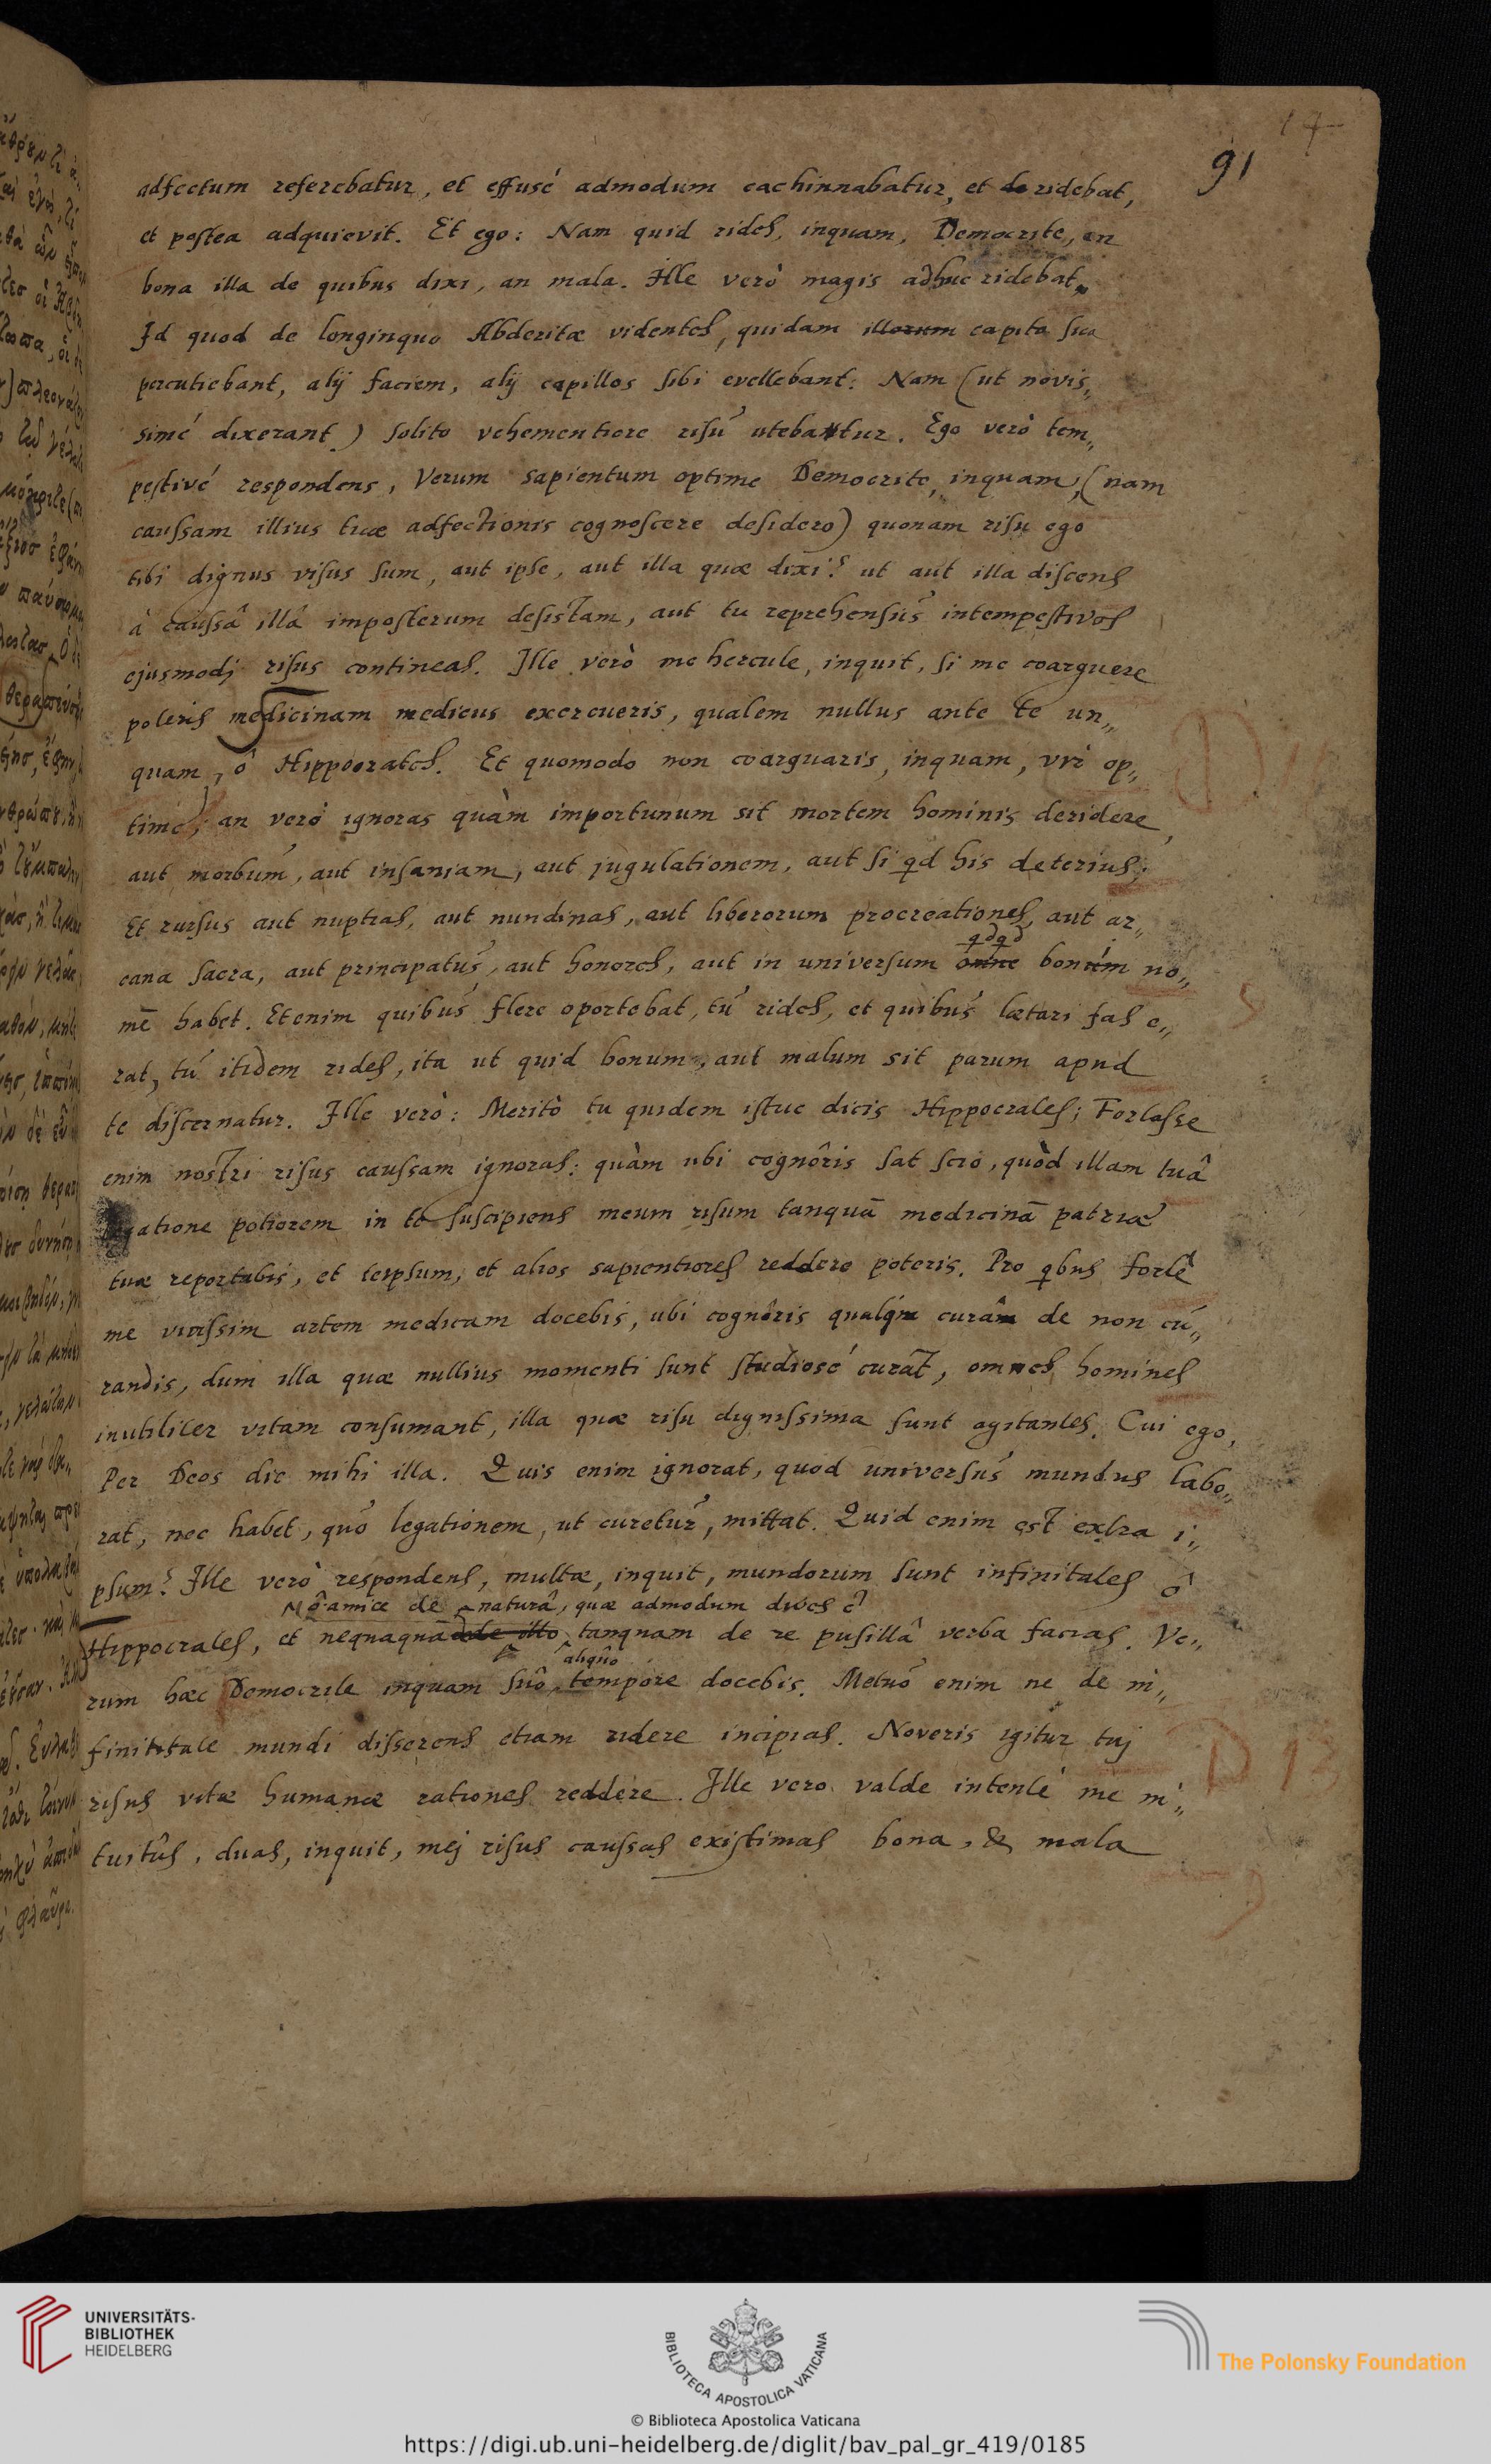 14
91
adfectum referebatur, et effusé admodum cachinnabatur, et deridebat,
et postea adquievit. Et ego: Nam quid rides, inquam, Democrite, an
bona illa de quibus dixi, an mala. Ille verò magis adhuc ridebat,
Id quod de longinquo Abderitæ videntes, quidam illorum capita sua
percutiebant, alij faciem, alij capillos sibi evellebant. Nam (ut novis„
simé dixerant) solito vehementiore risu utebatur. Ego verò tem„
pestivé respondens, Verum sapientum optime Democrite, inquam, (nam
caussam illius tuæ adfectionis cognoscere desidero) quonam risu ego
tibi dignus visus sum, aut ipse, aut illa quæ dixi? ut aut illa discens
à caussâ illâ imposterum desistam, aut tu reprehensus intempestivos
ejusmodj risus contineas. Ille verò me hercule, inquit, si me coarguere
poteris medicinam medicus exercueris, qualem nullus ante te un„
quam, ô Hippocrates. Et quomodo non coarguaris, inquam, vir op„
time, an verò ignoras quàm importunum sit mortem hominis deridere,
aut morbum, aut insaniam, aut jugulationem, aut si qd his deterius.
Et rursus aut nuptias, aut nundinas, aut liberorum procreationes, aut ar„
qdqd
cana sacra, aut principatus, aut honores, aut in universum omne boni no„
mē habet. Etenim quibus flere oportebat, tu rides, et quibus lætari fas e„
rat, tu itidem rides, ita ut quid bonum, aut malum sit parum apud
te discernatur. Ille verò: Meritò tu quidem istuc dicis Hippocrates; Fortasse
enim nostri risus caussam ignoras: quàm ubi cognôris sat scio, quòd illam tuâ
legatione potiorem in te suscipiens meum risum tanquā medicinā patriæ
tuæ reportabis, et teipsum, et alios sapientiores reddere poteris. Pro qbus forte
me vicissim artem medicam docebis, ubi cognôris curâ de non cu„
randis, dum illa quæ nullius momenti sunt studiosé curāt, omnes homines
inutiliter vitam consumant, illa quæ risu dignissima sunt agitantes. Cui ego,
Per Deos dic mihi illa. Quis enim ignorat, quod universus mundus labo„
rat, nec habet, quo legationem, ut curetur, mittat. Quid enim est extra i„
psum? Ille verò respondens, multæ, inquit, mundorum sunt infinitates ô
ô amice de naturâ, quæ admodum dives ē
Hippocrates, et nequaquā de illo tanquam de re pusillâ verba facias. Ve„
aliquo
rum hæc Democrite inquam suo tempore docebis. Metuo enim ne de in„
finitate mundi disserens etiam ridere incipias. Noveris igitur tuj
risus vitæ humanæ rationes reddere. Ille vero valde intentè me in„
tuitus, duas, inquit, mej risus caussas existimas bona, & mala
D 13
UNIVERSITÄTS-
BIBLIOTHEK
HEIDELBERG
BIBLIOTECA APOSTOLICA VATICANA
The Polonsky Foundation
© Biblioteca Apostolica Vaticana
https://digi.ub.uni-heidelberg.de/diglit/bav_pal_gr_419/0185